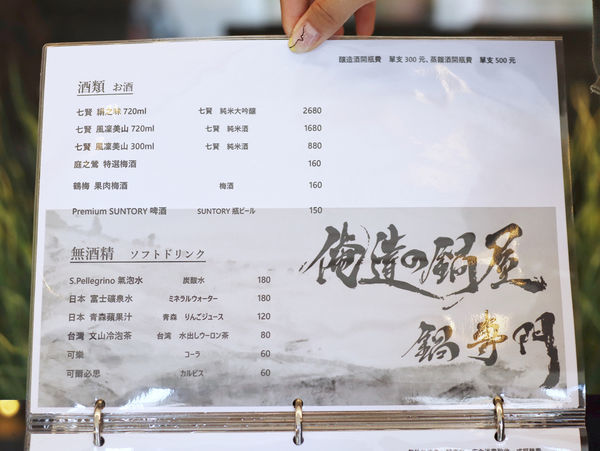 釀造酒開瓶費 單支 300 元、蒸餾酒開瓶費 單支 500 元
酒類 お酒
七賢 絹之味 720ml 七賢 純米大吟釀 2680
七賢 風凜美山 720ml 七賢 純米酒 1680
七賢 風凜美山 300ml 七賢 純米酒 880
庭之鶯 特選梅酒 160
鶴梅 果肉梅酒 梅酒 160
Premium SUNTORY 啤酒 SUNTORY 瓶ビール 150
無酒精 ソフトドリンク
S.Pellegrino 氣泡水 炭酸水 180
日本 富士礦泉水 ミネラルウォーター 180
日本 青森蘋果汁 青森 りんごジュース 120
台灣 文山冷泡茶 台湾 水出しウーロン茶 80
可樂 コーラ 60
可爾必思 カルピス 60
俺達の鍋屋
鍋專門